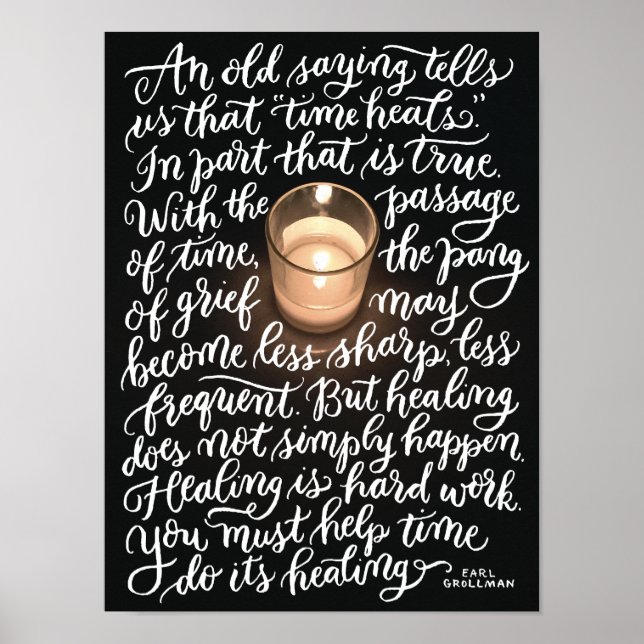 An old saying tells
us that "time heals."
In part that is true.
With the passage
of time, the pang
of grief may
become less sharp, less
frequent. But healing
does not simply happen.
Healing is hard work.
You must help time
do its healing
EARL
GROLLMAN